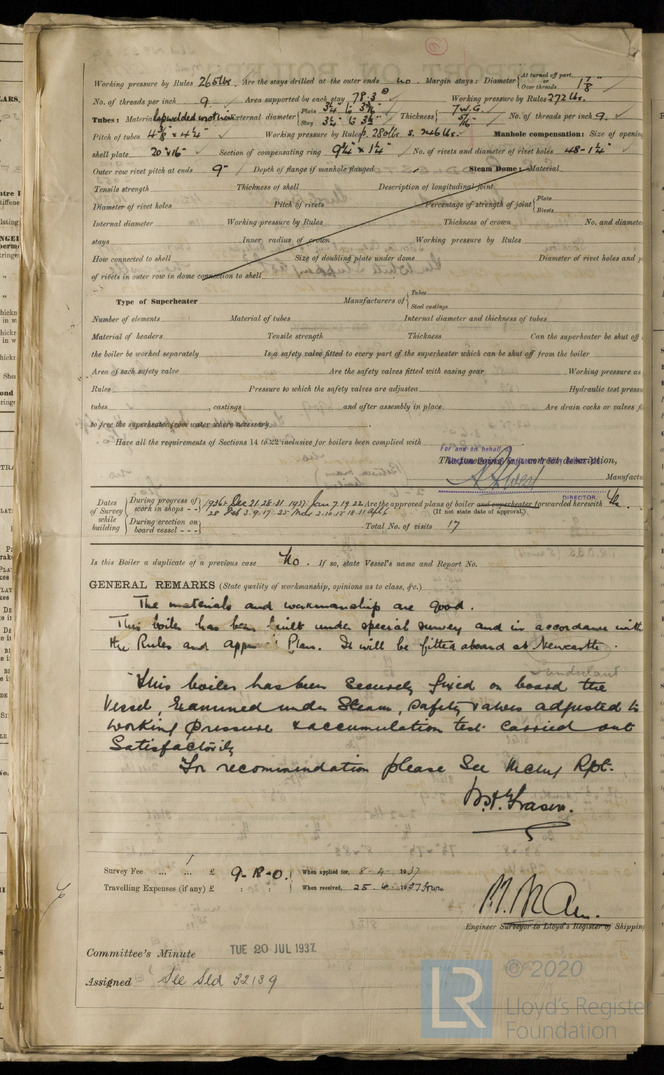 Working pressure by Rules 265 lbs. Are the stays drilled at the outer ends no. Margin stays: Diameter { At turned off part, or Over threads 1 7/8"
No. of threads per inch 9 Area supported by each stay 78.3 Working pressure by Rules 272 lbs.
Tubes: Material lapwelded wrot iron External diameter { Plain 3 1/4" & 3 3/4" Stay 3 1/4" & 3 3/4" Thickness { 7 W.G. 5/16" No. of threads per inch 9.
Pitch of tubes 4 5/8" x 4 1/2" Working pressure by Rules p. 280 lbs s. 246 lbs. Manhole compensation: Size of opening
shell plate 20" x 16" Section of compensating ring 9 1/4" x 1 1/4" No. of rivets and diameter of rivet holes 48 - 1 1/4"
Outer row rivet pitch at ends 9" Depth of flange if manhole flanged Steam Dome: Material
Tensile strength Thickness of shell Description of longitudinal joint
Diameter of rivet holes Pitch of rivets Percentage of strength of joint { Plate Rivets
Internal diameter Working pressure by Rules Thickness of crown No. and diameter
stays Inner radius of crown Working pressure by Rules
How connected to shell Size of doubling plate under dome Diameter of rivet holes and p
of rivets in outer row in dome connection to shell
Type of Superheater Manufacturers of { Tubes Steel castings
Number of elements Material of tubes Internal diameter and thickness of tubes
Material of headers Tensile strength Thickness Can the superheater be shut off
the boiler be worked separately Is a safety valve fitted to every part of the superheater which can be shut off from the boiler
Area of each safety valve Are the safety valves fitted with easing gear Working pressure as
Rules Pressure to which the safety valves are adjusted Hydraulic test press
tubes , castings and after assembly in place Are drain cocks or valves f
to free the superheater from water where necessary
Have all the requirements of Sections 14 to 22 inclusive for boilers been complied with
For and on behalf of
The foregoing is a correct description,
Manufactu
DIRECTOR.
Dates of Survey while building { During progress of work in shops - - 1936: Dec 21. 28. 31. 1937 Jan 7. 19. 22 Are the approved plans of boiler and superheater forwarded herewith
28 Feb 2. 9. 17. 25 Mar 2. 10. 15. 18. 31 Apl (If not state date of approval.)
During erection on board vessel - - - Total No. of visits 17
Is this Boiler a duplicate of a previous case No. If so, state Vessel's name and Report No.
GENERAL REMARKS (State quality of workmanship, opinions as to class, &c.)
The materials and workmanship are good.
This boiler has been built under special survey and in accordance with
the Rules and Plan. It will be fitted aboard at Newcastle.
Sunderland
This boiler has been securely fixed on board the
Vessel, Examined under Steam, Safety valves adjusted to
working pressure & accumulation test carried out
Satisfactorily
For recommendation please See Mchy Rpt.
Fraser.
Survey Fee ... ... £ 9 - 18 - 0. When applied for, 8 - 4 - 1937
Travelling Expenses (if any) £ : : When received, 25. 6. 1937
Engineer Surveyor to Lloyd's Register of Shipping
Committee's Minute TUE 20 JUL 1937
Assigned See Sld 32139
LR
© 2020
Lloyd's Register
Foundation